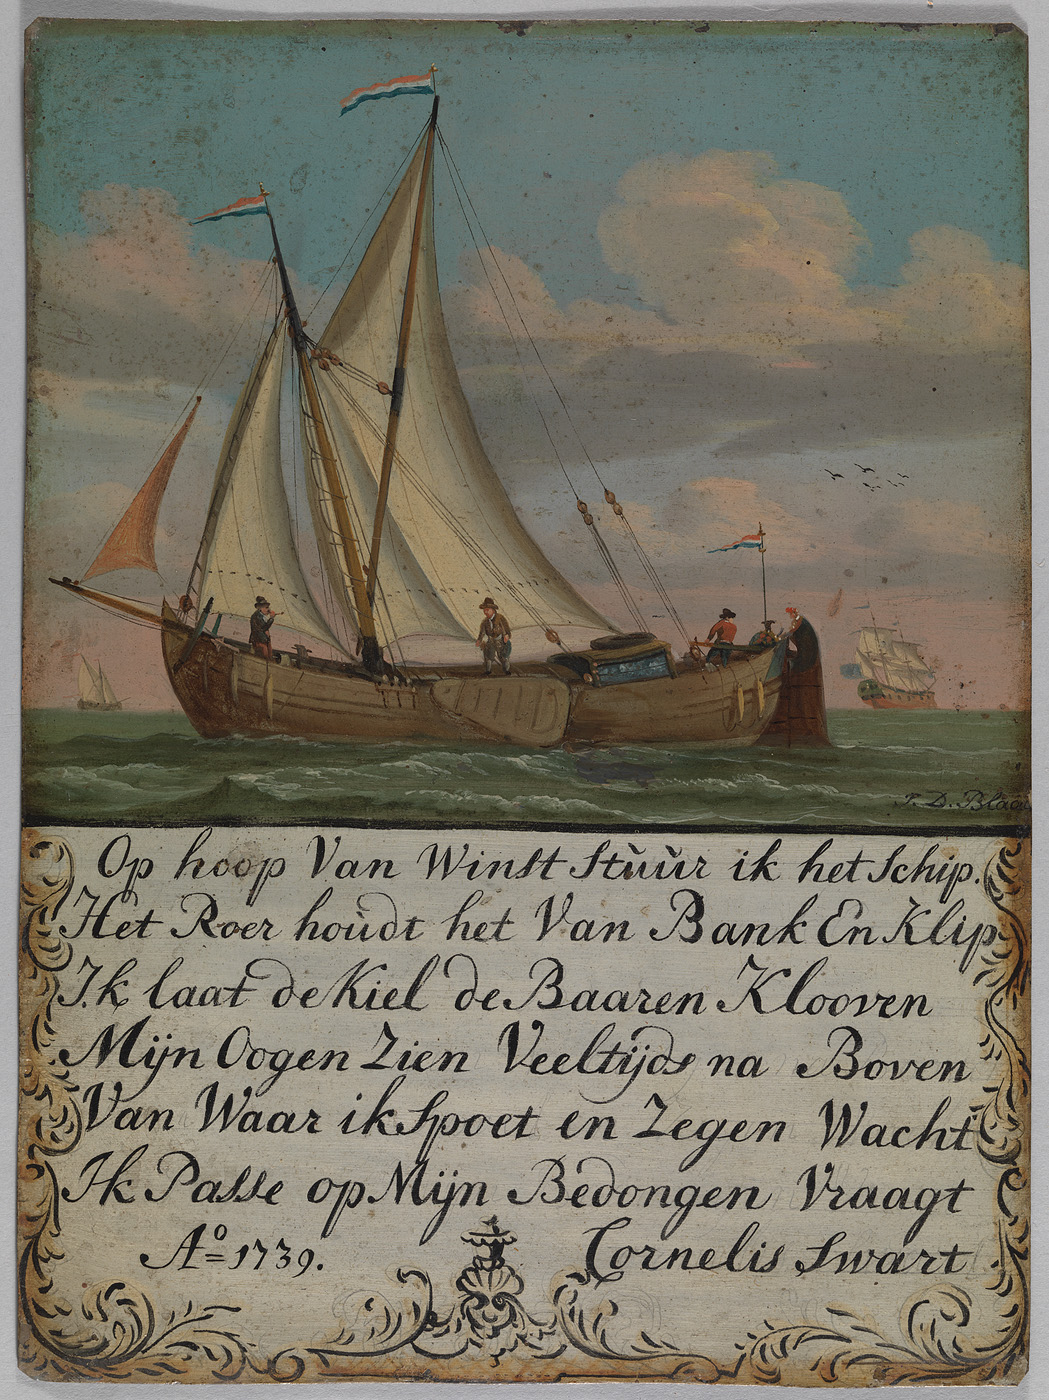 J. D. Blaau
Op hoop Van Winst Stùùr ik het Schip.
Het Roer hoùdt het Van Bank En Klip
Ik laat de Kiel de Baaren Klooven
Mijn Oogen Zien Veeltijds na Boven
Van Waar ik Spoet en Zegen Wacht
Ik Passe op Mijn Bedongen Vraagt
Aº=1739. Cornelis Swart